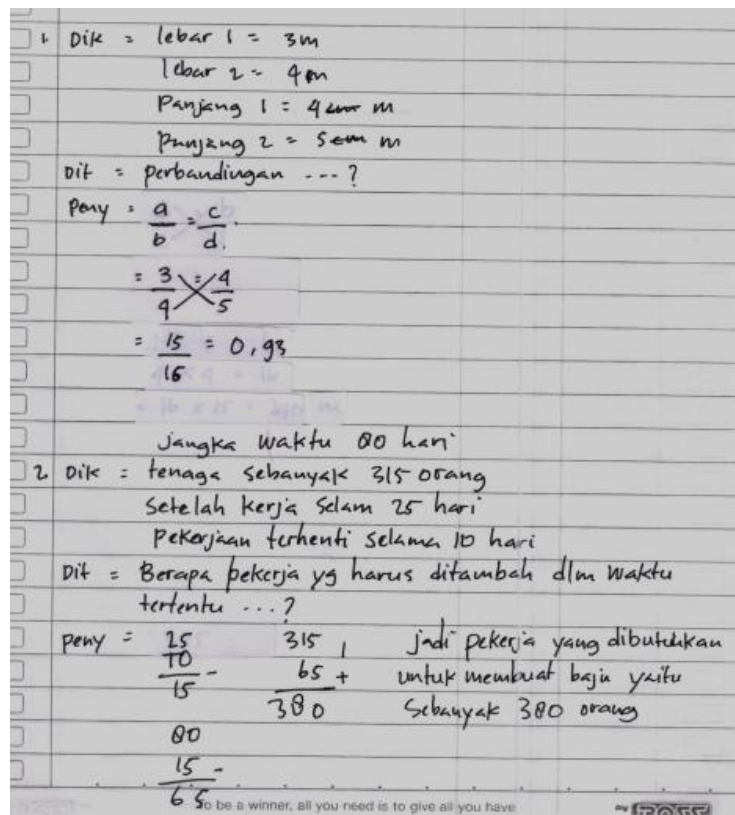 1. Dik = lebar 1 = 3m
lebar 2 = 4 m
Panjang 1 = 4 m
Panjang 2 = 5 m
Dit = perbandingan ---?
Peny = a/b = c/d.
= 3/4 = 4/5
= 15/16 = 0,93
jangka waktu 80 hari
2 Dik = tenaga sebanyak 315 orang
Setelah kerja Selam 25 hari
Pekerjaan terhenti selama 10 hari
Dit = Berapa pekerja yg harus ditambah dlm waktu
tertentu ...?
peny = 25 315 , jadi pekerja yang dibutuhkan
10 - 65 + untuk membuat baju yaitu
15 380 Sebanyak 380 orang
80
15 -
65
So be a winner, all you need is to give all you have
BOSS